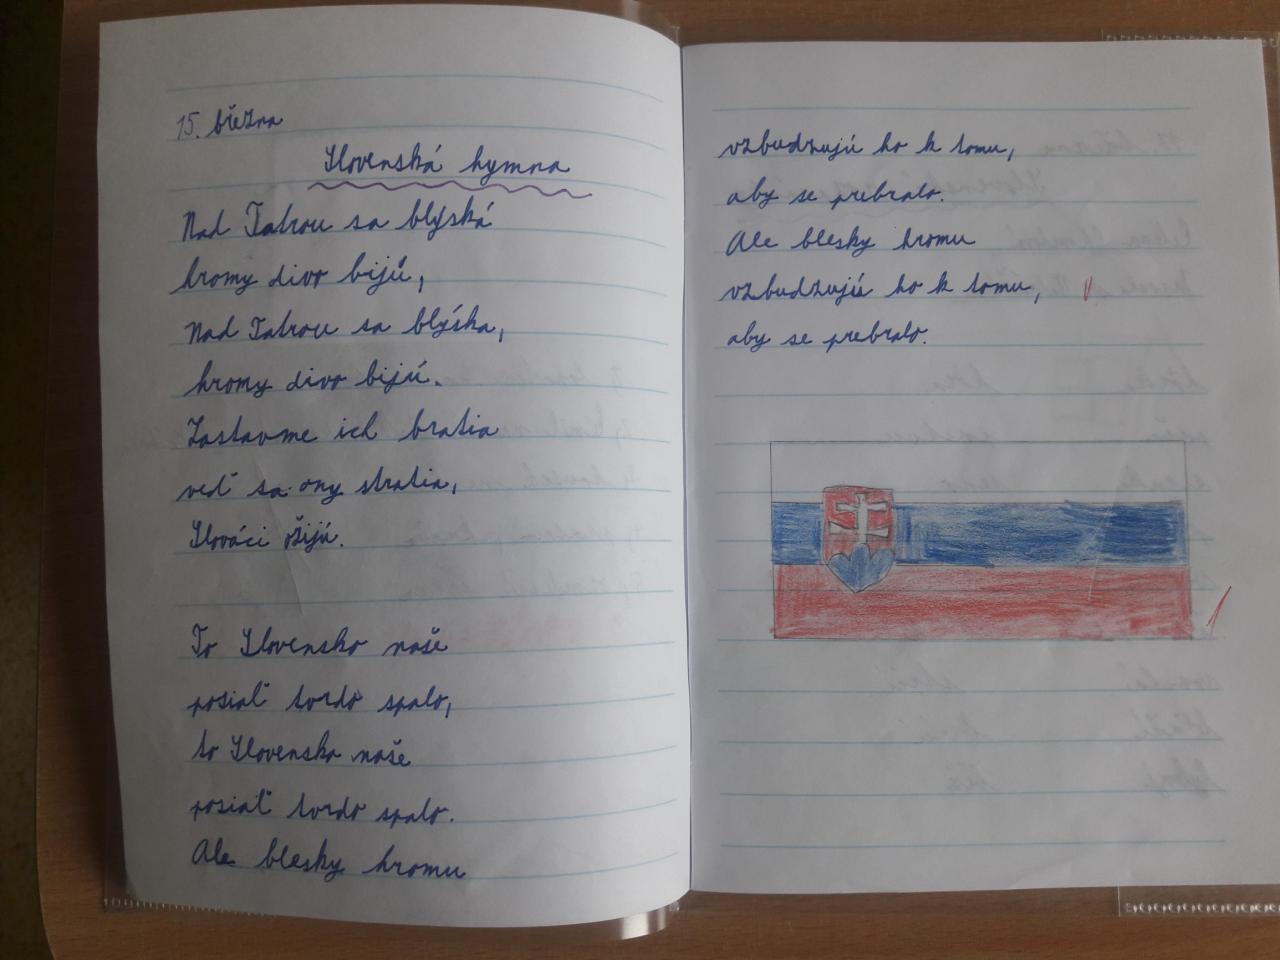 15. března
Slovenská hymna
Nad Tatrou sa blýská
hromy divo bijú,
Nad Tatrou sa blýska,
hromy divo bijú.
Zastavme ich bratia
veď sa ony stratia,
Slováci ožijú.
To Slovensko naše
posiaľ tvrdo spalo,
to Slovensko naše
posiaľ tvrdo spalo.
Ale blesky hromu
vzbudzujú ho k tomu,
aby se prebralo.
Ale blesky hromu
vzbudzujú ho k tomu,
aby se prebralo.